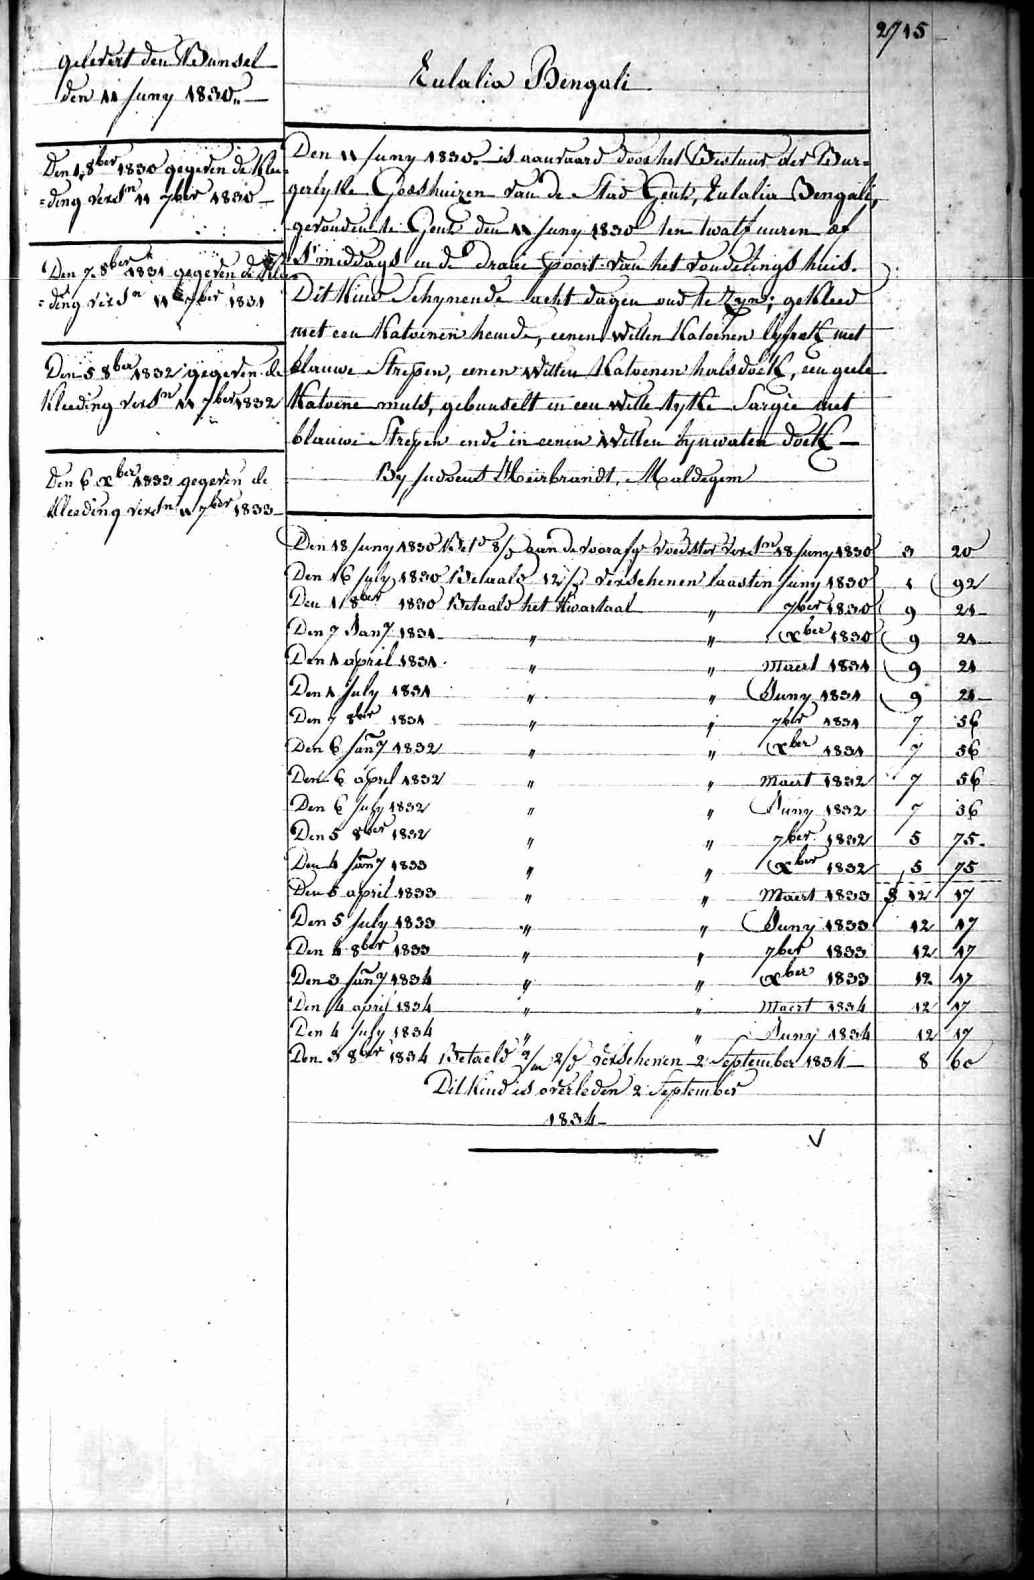 2715
gelevert den Bunsel
den 11 Juny 1830.
Eulalia Bengali
Den 1 8ber 1830 gegeven de Klee-
=ding versn 11 7ber 1830
Den 7 8ber 1831 gegeven de Klee
=ding versn 11 7ber 1831
Den 5 8ber 1832 gegeven de
Kleeding versn 11 7ber 1832
Den 6 xber 1833 gegeven de
Kleeding versn 11 7ber 1833
Den 11 Juny 1830 is aanvaard door het Bestuur der Bur-
gerlyke Godshuizen van de Stad Gent, Eulalia Bengali,
gevonden te Gent den 11 Juny 1830 ten twalf uuren af
S'middags in de draai poort van het vondelings huis.
Dit Kind Schynende acht dagen oud te zyn; gekleed
met een Katoenen hemde, eenen witten Katoenen lyfrok met
blauwe Strepen, eenen witten Katoenen halsdoek, een geele
Katoene muts, gebunselt in een witte tyke Sargie met
blauwe Strepen ende in eenen witten lynwaten doek
By Judocus Heirbrandt, Maldegem
Den 18 Juny 1830 Bet.d 8/ aan de voorafge voedster versn 18 Juny 1830 3 20
Den 16 July 1830 Betaald 12/ verschenen laasten Juny 1830 1 92
Den 1 8ber 1830 Betaald het Kwartaal " 7ber 1830 9 21
Den 7 Jany 1831 " " xber 1830 9 21
Den 1 april 1831 " " Maert 1831 9 21
Den 1 July 1831 " " Juny 1831 9 21
Den 7 8ber 1831 " " 7ber 1831 7 56
Den 6 Jany 1832 " " xber 1831 7 56
Den 6 april 1832 " " Maert 1832 7 56
Den 6 July 1832 " " Juny 1832 7 56
Den 5 8ber 1832 " " 7ber 1832 5 75
Den 4 Jany 1833 " " xber 1832 5 75
Den 5 april 1833 " " Maert 1833 12 17
Den 5 July 1833 " " Juny 1833 12 17
Den 4 8ber 1833 " " 7ber 1833 12 17
Den 3 Jany 1834 " " xber 1833 12 17
Den 4 april 1834 " " Maert 1834 12 17
Den 4 July 1834 " " Juny 1834 12 17
Den 3 8ber 1834 Betaeld 2/m 2/ verschenen 2 September 1834 8 60
Dit Kind is overleden 2 September
1834